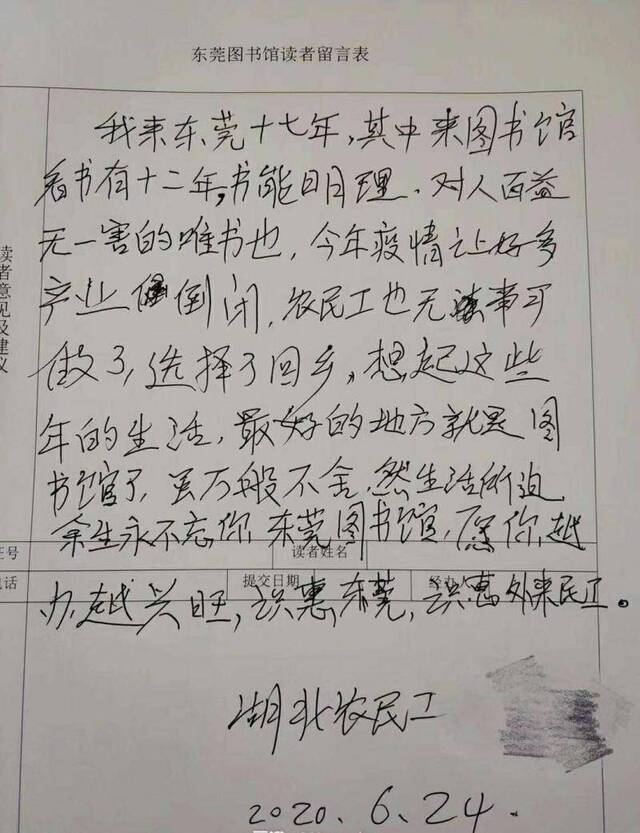 东莞图书馆读者留言表
我来东莞十七年,其中来图书馆
看书有十二年,书能明理、对人百益
无一害的唯书也,今年疫情让好多
产业倒闭,农民工也无事可
做了,选择了回乡,想起这些
年的生活,最好的地方就是图
书馆了,虽万般不舍,然生活所迫
余生永不忘你,东莞图书馆,愿你越
办越兴旺,识惠东莞,识惠外来民工。
湖北农民工
2020.6.24.
读者意见及建议
证号
读者姓名
电话
提交日期
经办人